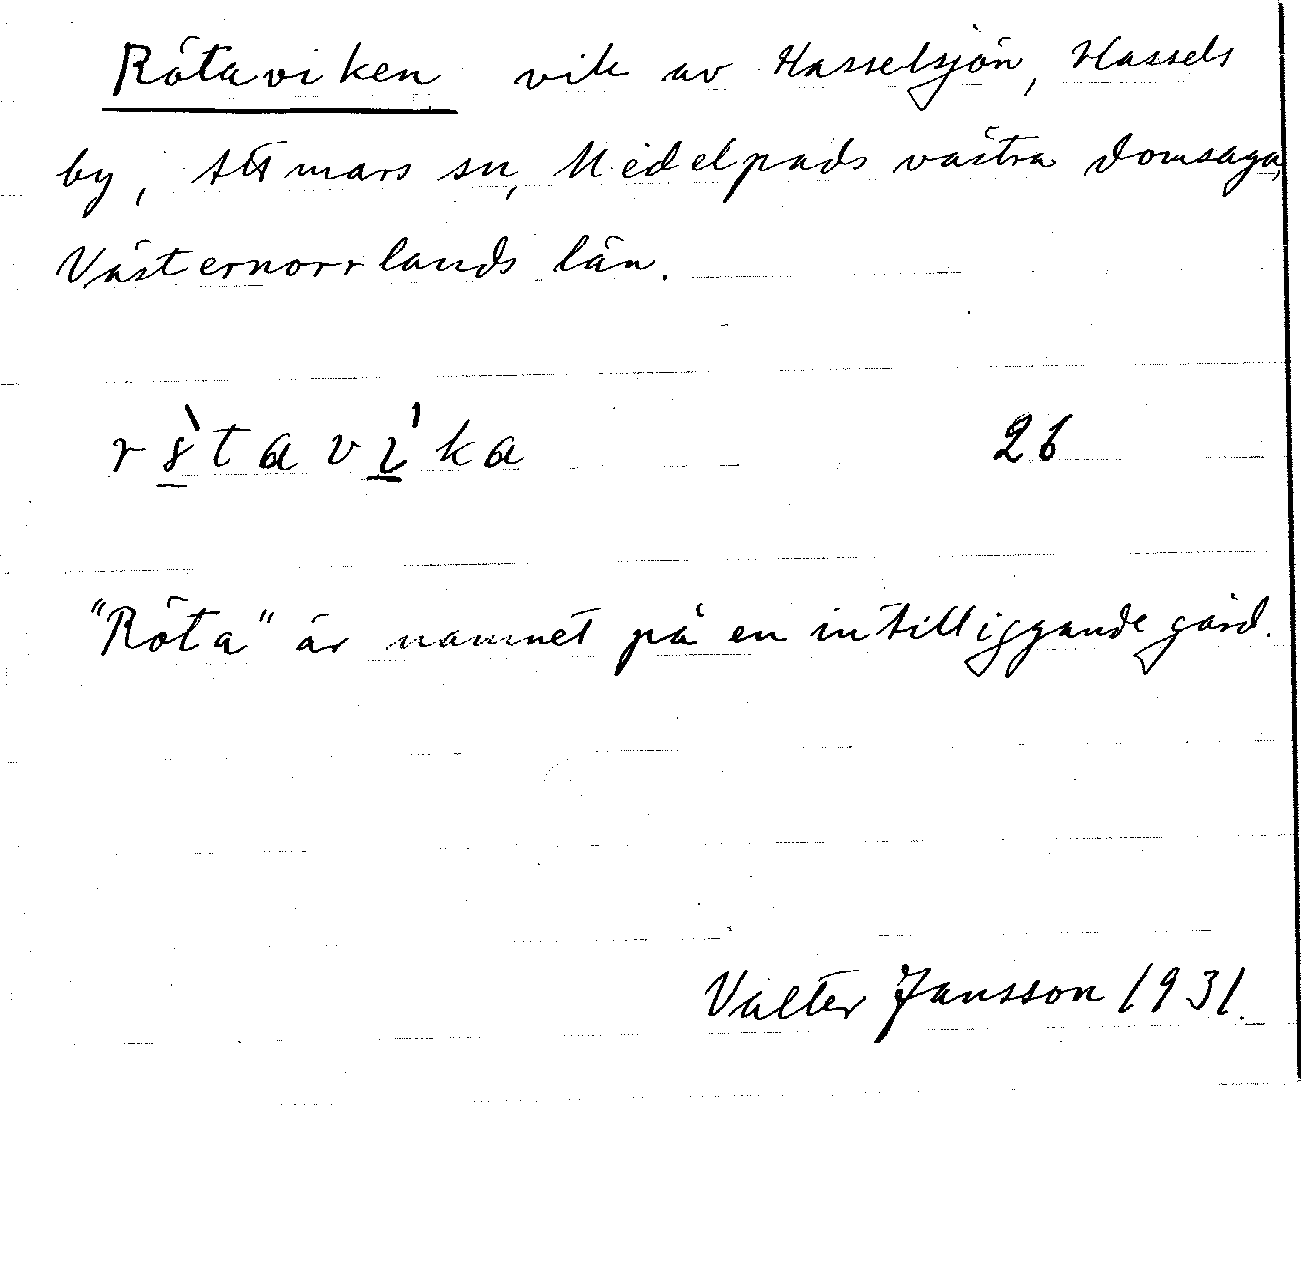 Rötaviken vik av Hasselsjön, Hassels
by, Attmars sn, Medelpads västra domsaga,
Västernorrlands län.
r8̠̀tavı̠́ka 26
"Röta" är namnet på en intilliggande gård.
Valter Jansson 1931.